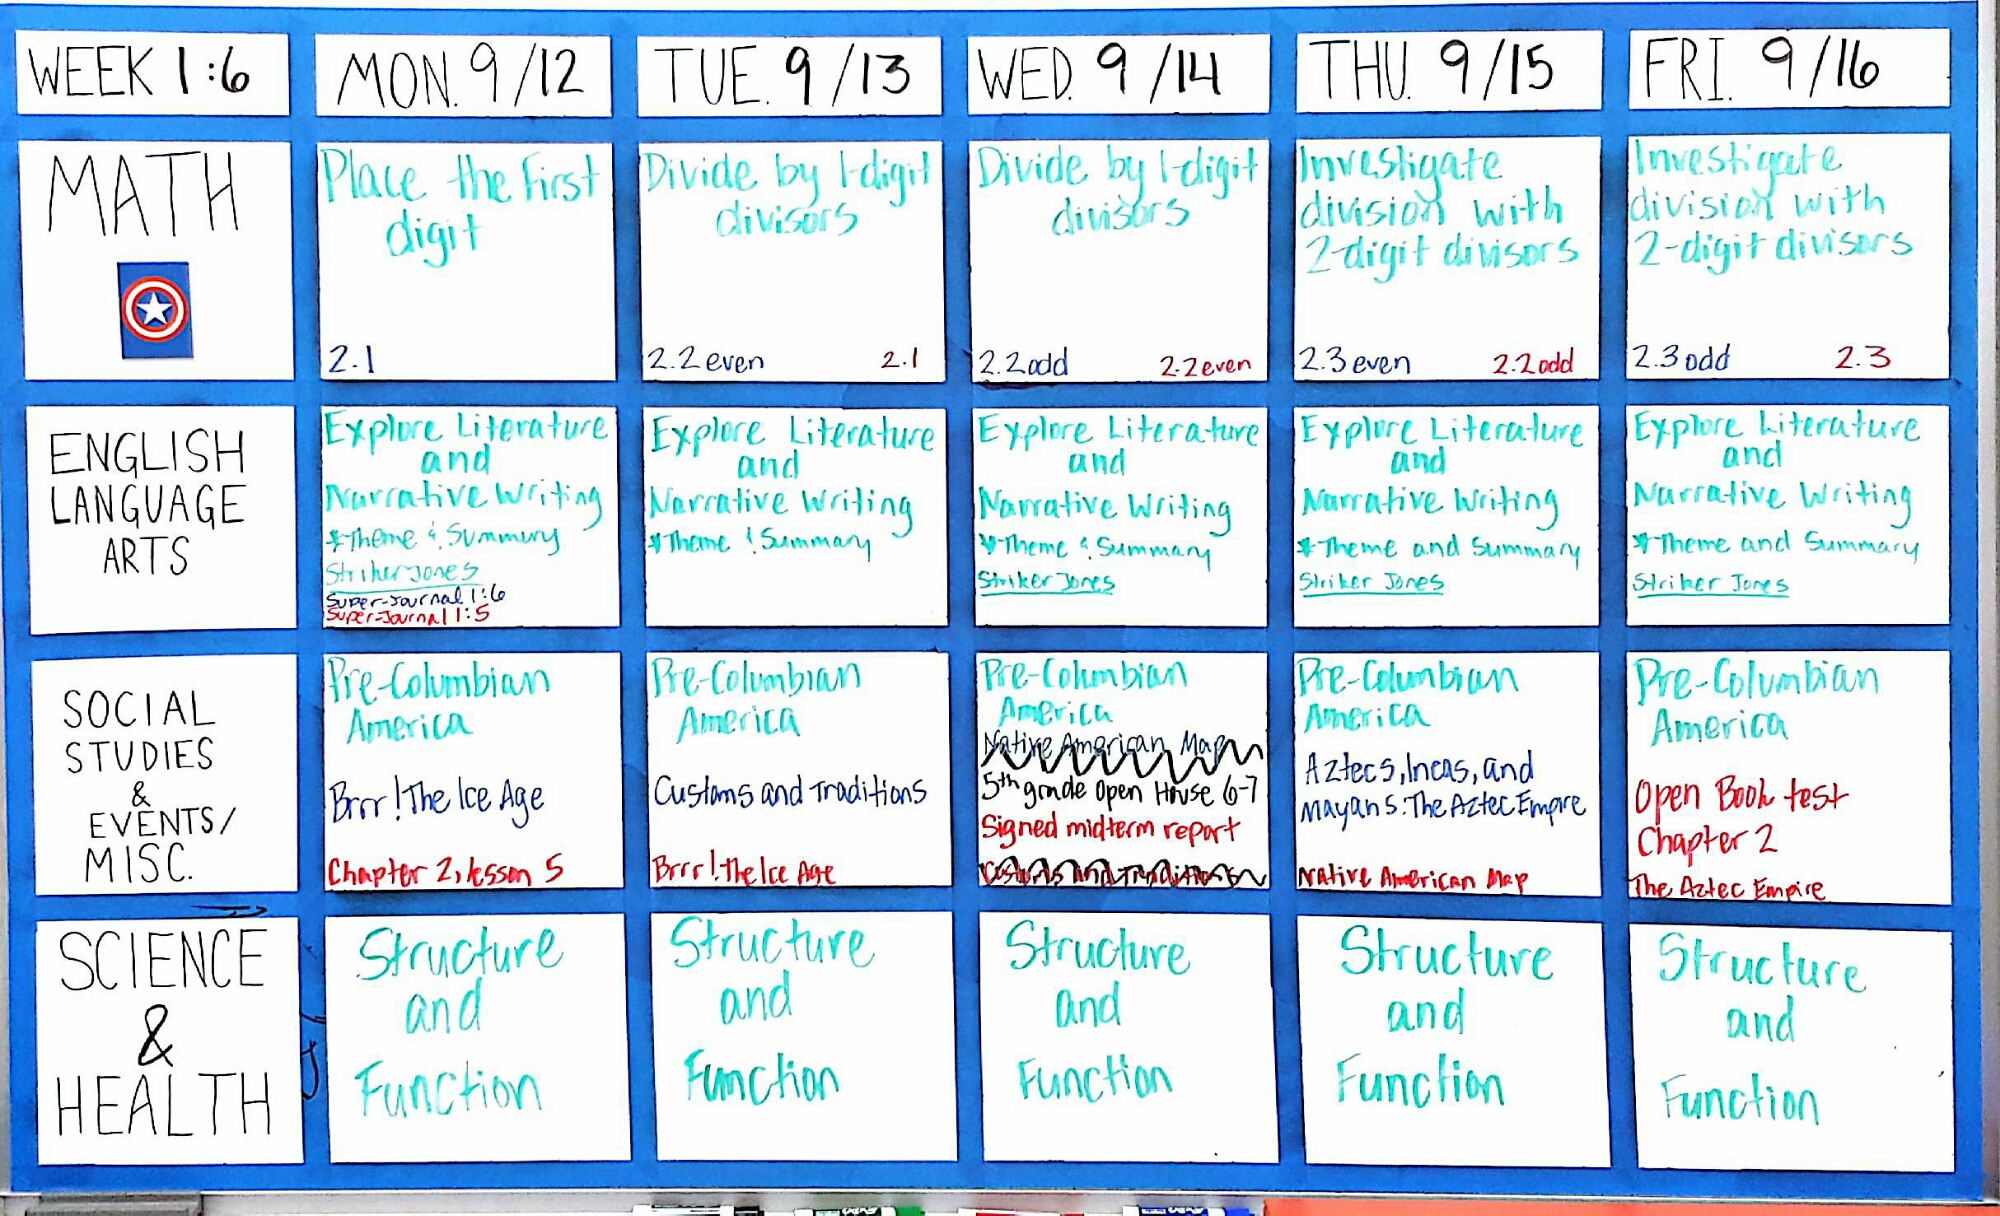 WEEK 1:6
MON. 9/12
TUE. 9/13
WED. 9/14
THU. 9/15
FRI. 9/16
MATH
Place the first
digit
2.1
Divide by 1-digit
divisors
2.2 even 2.1
Divide by 1-digit
divisors
2.2 odd 2.2 even
Investigate
division with
2-digit divisors
2.3 even 2.2 odd
Investigate
division with
2-digit divisors
2.3 odd 2.3
ENGLISH
LANGUAGE
ARTS
Explore Literature
and
Narrative Writing
*Theme & Summary
Striker Jones
Super-Journal 1:6
Super-Journal 1:5
Explore Literature
and
Narrative Writing
*Theme & Summary
Explore Literature
and
Narrative Writing
*Theme & Summary
Striker Jones
Explore Literature
and
Narrative Writing
*Theme and Summary
Striker Jones
Explore Literature
and
Narrative Writing
*Theme and Summary
Striker Jones
SOCIAL
STUDIES
&
EVENTS/
MISC.
Pre-Columbian
America
Brrr! The Ice Age
Chapter 2, lesson 5
Pre-Columbian
America
Customs and Traditions
Brrr! the Ice Age
Pre-Columbian
America
Native American Map
5th grade Open House 6-7
Signed midterm report
Customs and Traditions
Pre-Columbian
America
Aztecs, Incas, and
Mayans: The Aztec Empire
Native American Map
Pre-Columbian
America
Open Book test
Chapter 2
The Aztec Empire
SCIENCE
&
HEALTH
Structure
and
Function
Structure
and
Function
Structure
and
Function
Structure
and
Function
Structure
and
Function